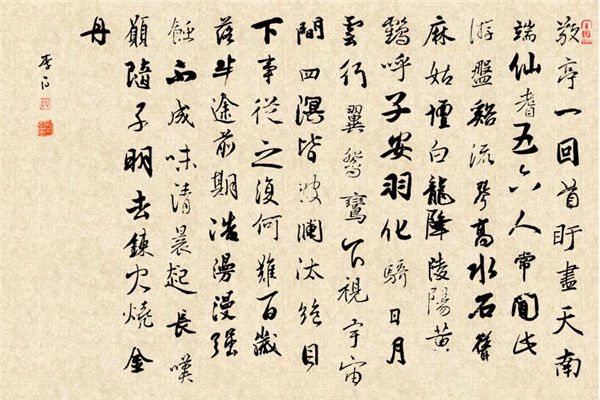 敬亭一回首盱盡天南
端仙耆五六人常聞此
游盤谿流琴高水石聳
麻姑壇白龍降陵陽黄
鶴呼子安羽化騎日月
雲行翼鴛鸞下視宇宙
間四溟皆波瀾汰絶目
下事從之復何難百歲
落半途前期浩漫漫强
不成味清晨起長嘆
願隨子明去鍊火燒金
丹
李白